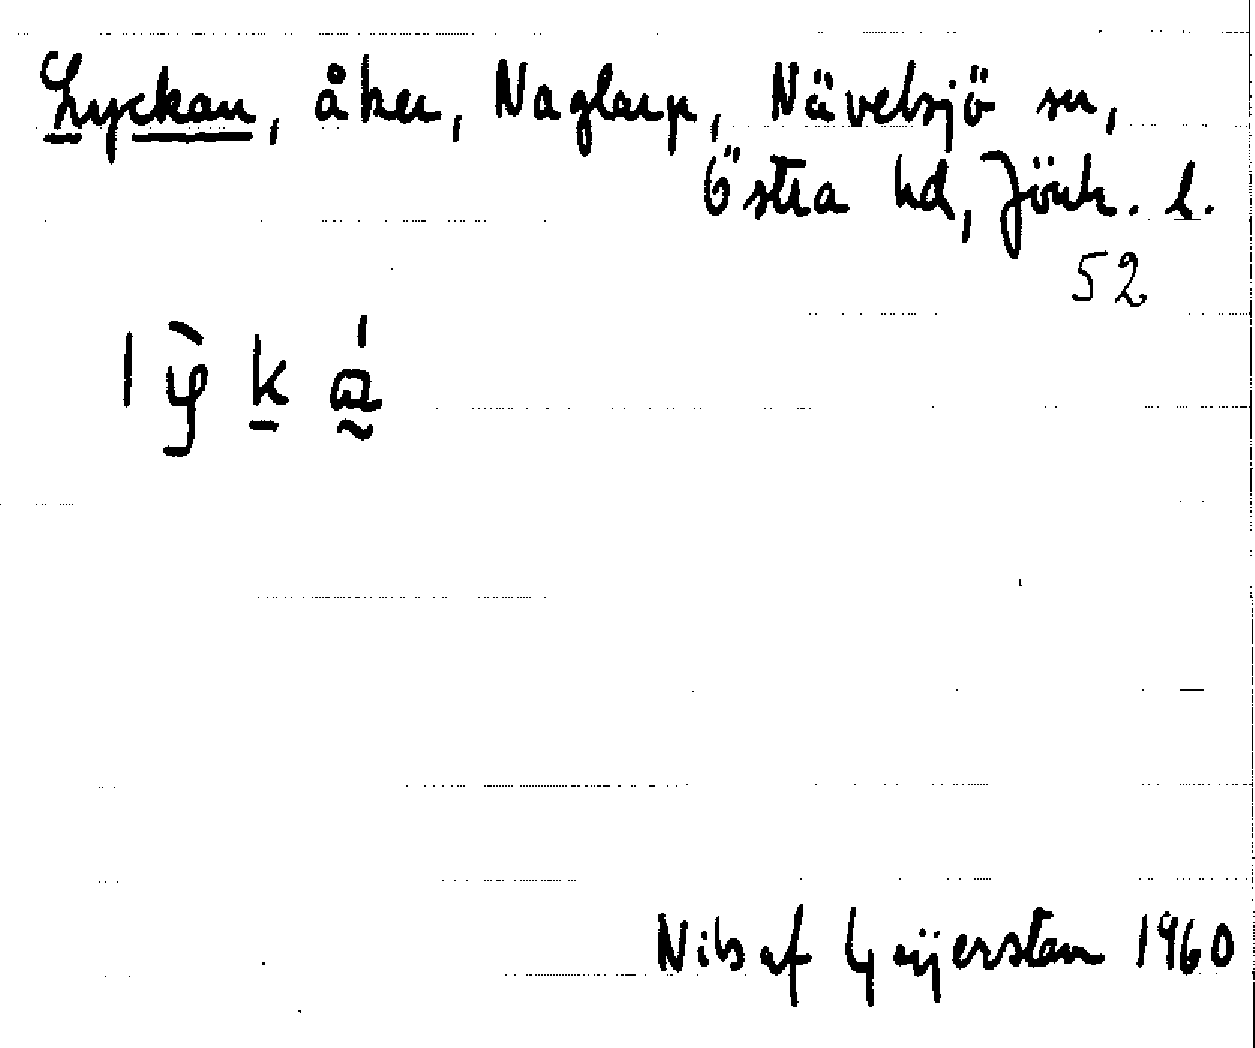 Lyckan, åker, Naglarp, Nävelsjö sn,
Östra hd, Jönk. l.
52
Nils af Geijerstam 1960